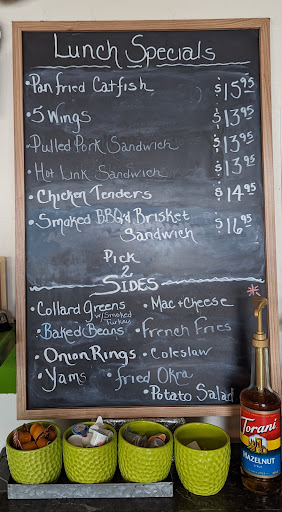 Lunch Specials
• Pan fried Catfish $15.95
• 5 Wings $13.95
• Pulled Pork Sandwich $13.95
• Hot Link Sandwich $13.95
• Chicken Tenders $14.95
• Smoked BBQ'd Brisket
Sandwich $16.95
Pick
2
Sides
• Collard Greens • Mac + Cheese
w/ Smoked
Turkey
• Baked Beans • French Fries
• Onion Rings • Coleslaw
• Yams • fried Okra
• Potato Salad
TORANI
HAZELNUT